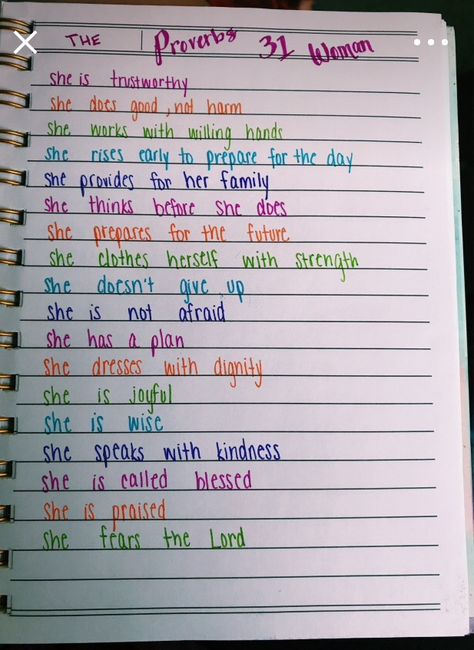 THE Proverbs 31 Woman
she is trustworthy
she does good, not harm
she works with willing hands
she rises early to prepare for the day
she provides for her family
she thinks before she does
she prepares for the future
she clothes herself with strength
she doesn't give up
she is not afraid
she has a plan
she dresses with dignity
she is joyful
she is wise
she speaks with kindness
she is called blessed
she is praised
she fears the Lord